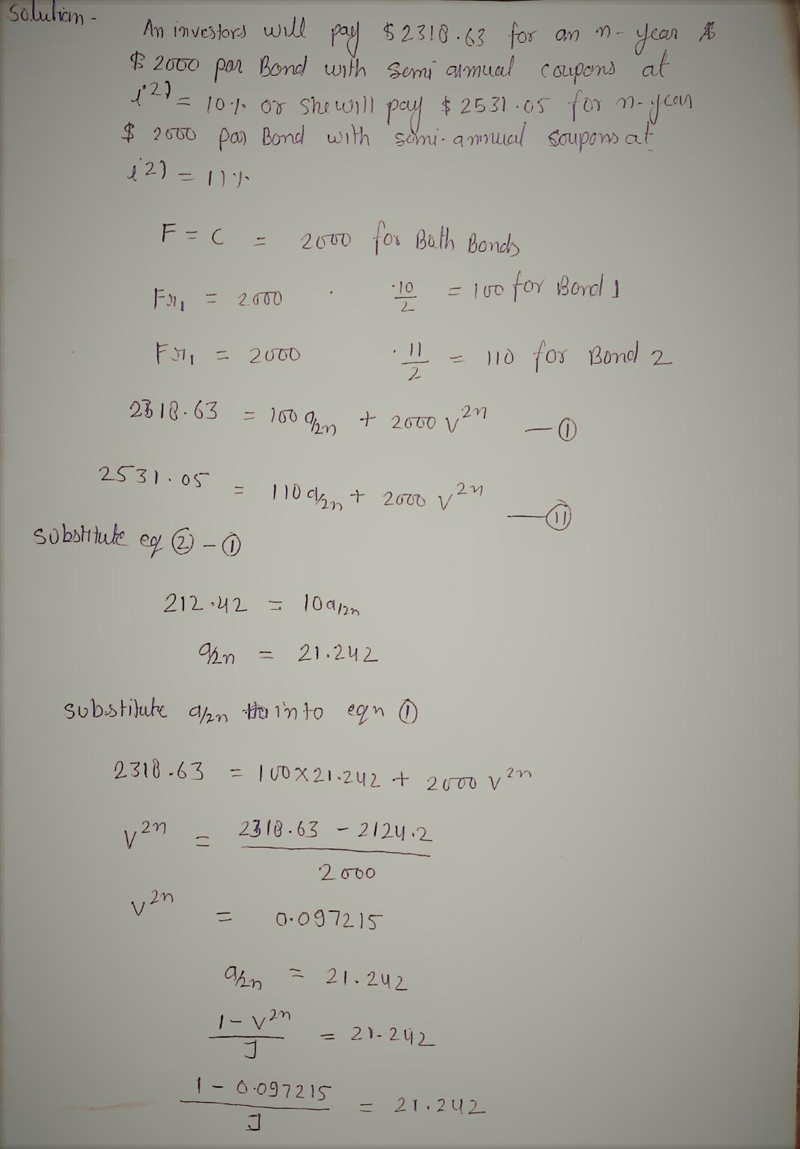 Solution -
An investors will pay $2318.63 for an n-year $
$2000 par Bond with semi annual coupons at
i'2) = 10% or she will pay $2531.05 for n-year
$ 2000 par Bond with semi-annual soupons at
i'2) = 11%
F = C = 2000 for Bath Bonds
Fr₁ = 2000 · ·10/2 = 100 for Bond 1
Fr₁ = 2000 ·11/2 = 110 for Bond 2
2318.63 = 100 a/2n + 2000 V^2n — ①
2531.05 = 110 a/2n + 2000 V^2n — ⑪
Substitute eq ② - ①
212.42 = 10 a/2n
a/2n = 21.242
Substitute a/2n into eqn ①
2318.63 = 100×21.242 + 2000 V^2n
V^2n = (2318.63 - 2124.2)/2000
V^2n = 0.097215
a/2n = 21.242
(1 - V^2n)/J = 21.242
(1 - 0.097215)/J = 21.242